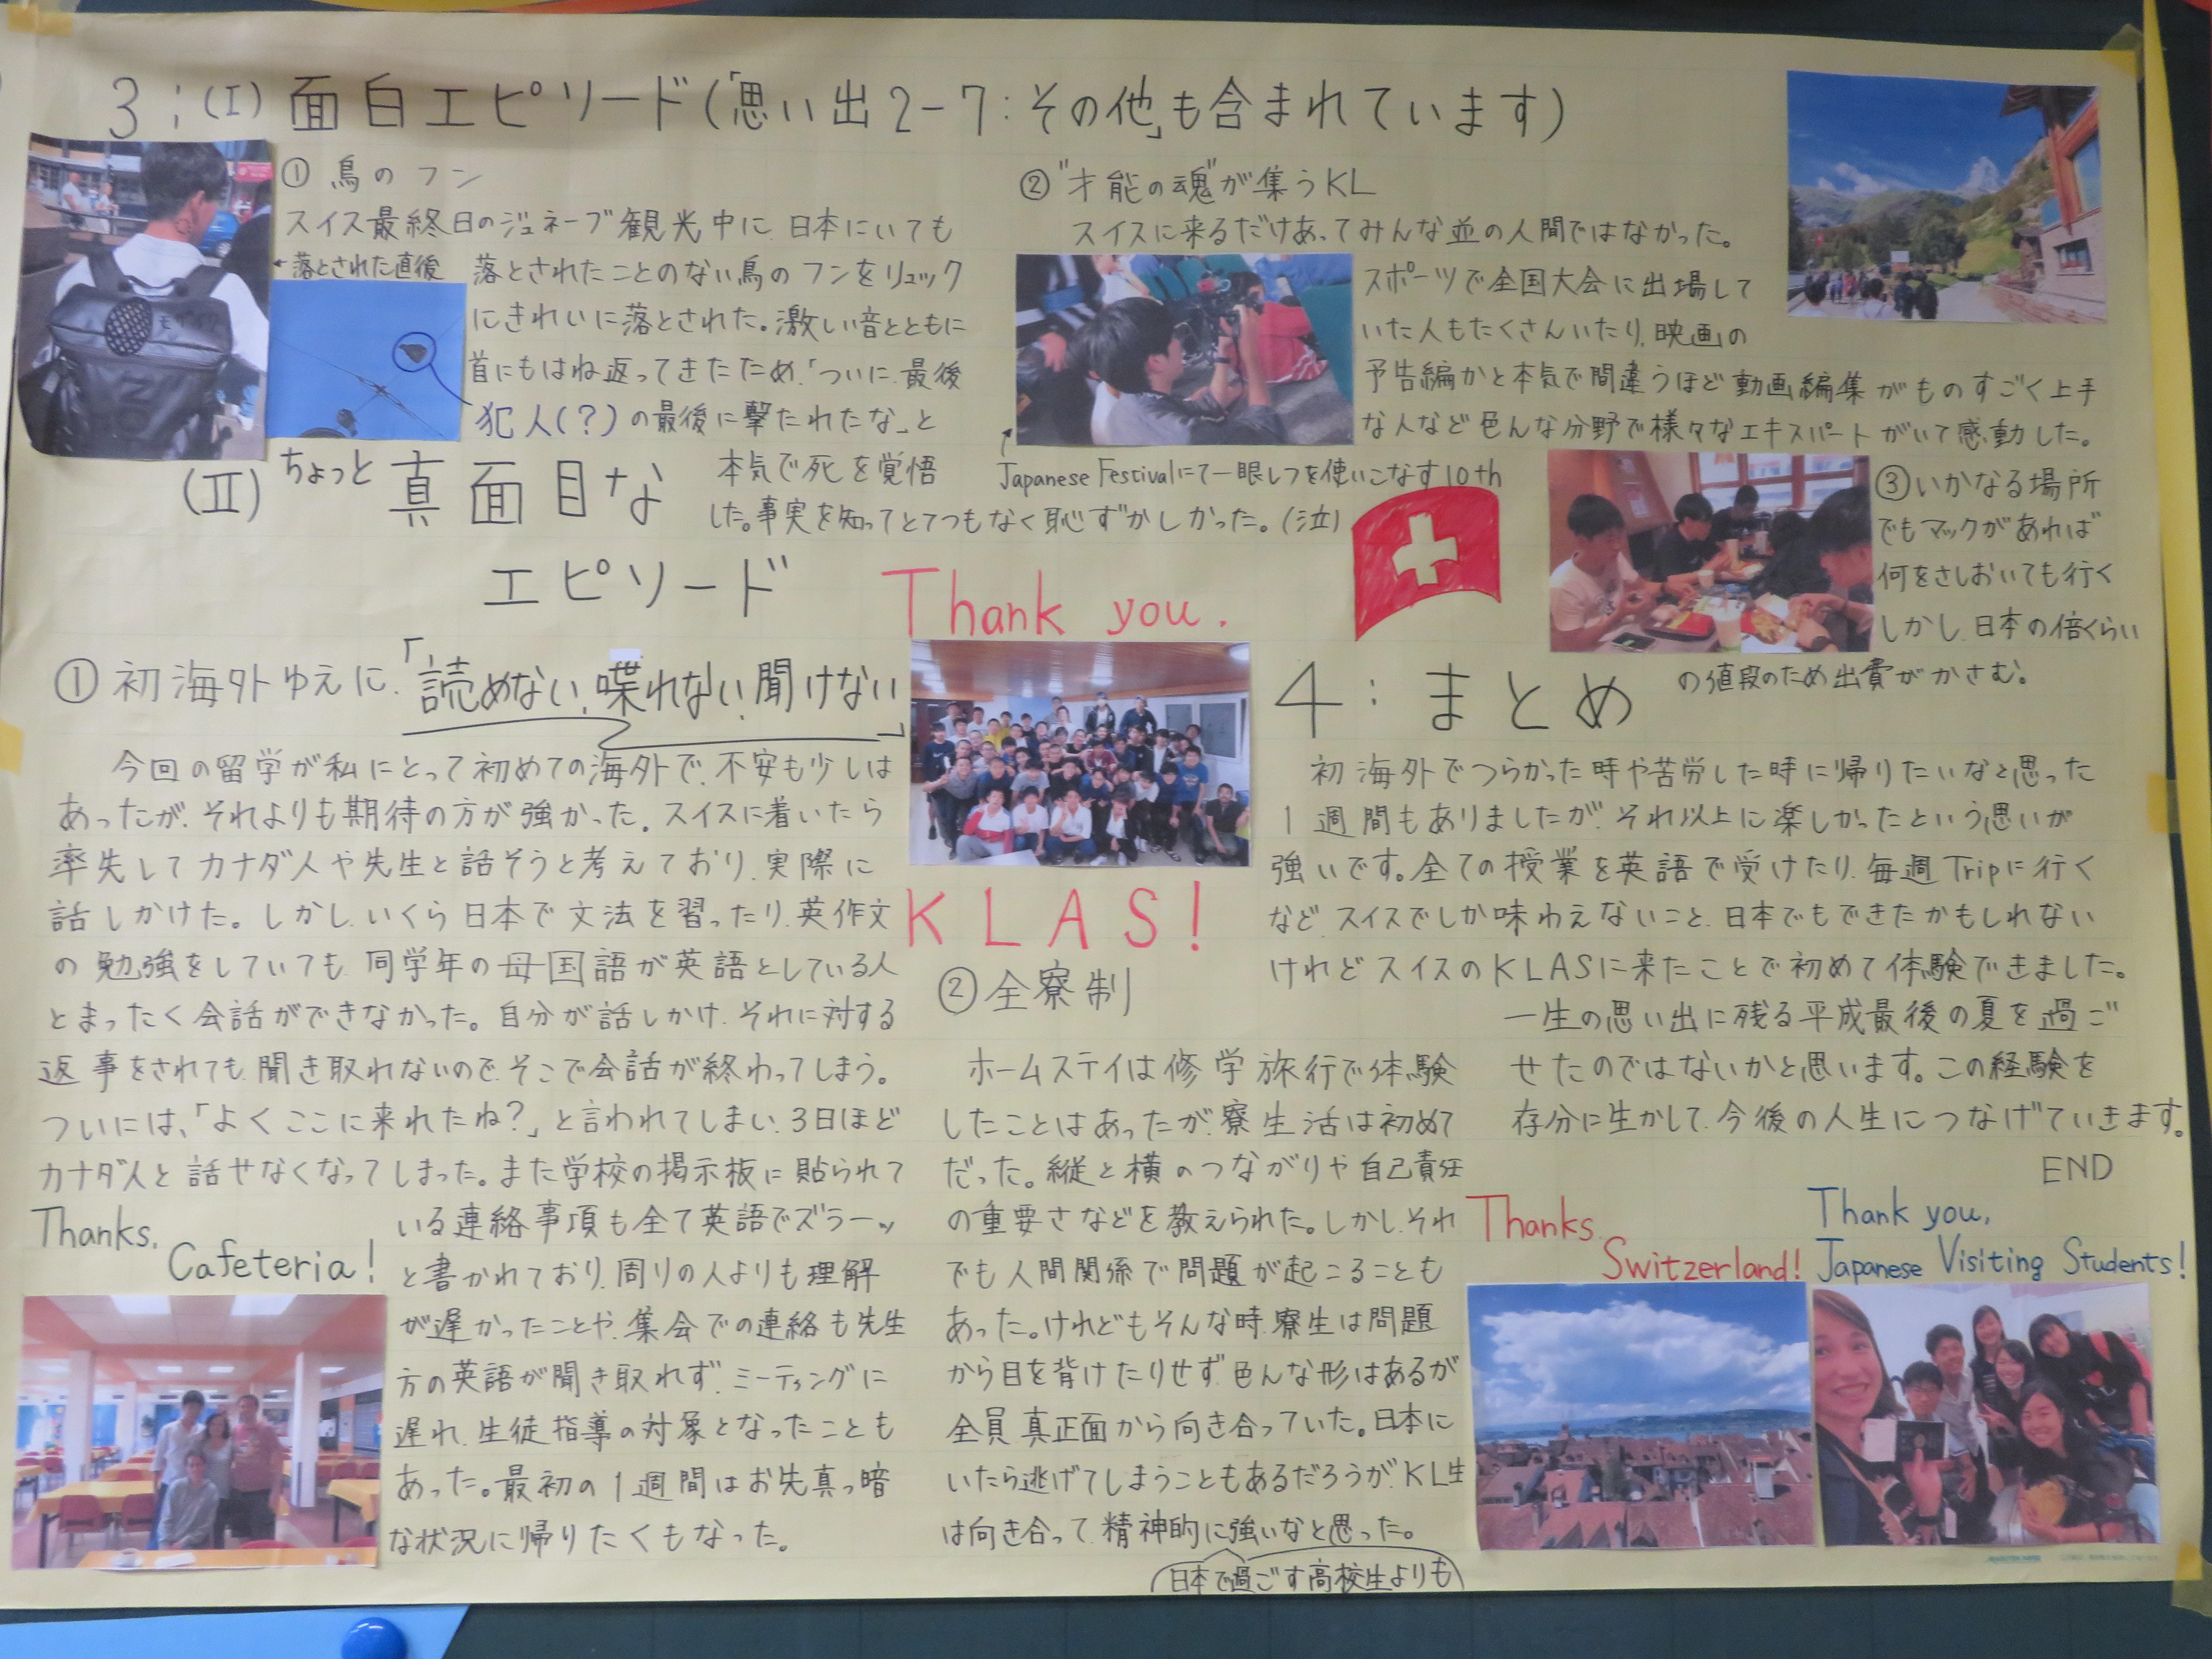 3:(I) 面白エピソード(「思い出2-7:その他」も含まれています)
① 鳥のフン
スイス最終日のジュネーブ観光中に、日本にいても
←落とされた直後
落とされたことのない鳥のフンをリュック
にきれいに落とされた。激しい音とともに
首にもはね返ってきたため、「ついに、最後
犯人(?)の最後に撃たれたな」と
本気で死を覚悟
した。事実を知ってとてつもなく恥ずかしかった。(泣)
② "才能の魂"が集うKL
スイスに来るだけあってみんな並の人間ではなかった。
スポーツで全国大会に出場して
いた人もたくさんいたり、映画の
予告編かと本気で間違うほど動画編集がものすごく上手
な人など色んな分野で様々なエキスパートがいて感動した。
Japanese Festivalにて一眼レフを使いこなす10th
③いかなる場所
でもマックがあれば
何をさしおいても行く
しかし、日本の倍くらい
の値段のため出費がかさむ。
(II) ちょっと真面目な
エピソード
① 初海外ゆえに、「読めない、喋れない、聞けない」
今回の留学が私にとって初めての海外で、不安も少しは
あったが、それよりも期待の方が強かった。スイスに着いたら
率先してカナダ人や先生と話そうと考えており、実際に
話しかけた。しかし、いくら日本で文法を習ったり、英作文
の勉強をしていても、同学年の母国語が英語としている人
とまったく会話ができなかった。自分が話しかけ、それに対する
返事をされても、聞き取れないので、そこで会話が終わってしまう。
ついには、「よくここに来れたね?」と言われてしまい、3日ほど
カナダ人と話せなくなってしまった。また学校の掲示板に貼られて
いる連絡事項も全て英語でズラーッ
と書かれており、周りの人よりも理解
が遅かったことや、集会での連絡も先生
方の英語が聞き取れず、ミーティングに
遅れ、生徒指導の対象となったことも
あった。最初の1週間はお先真っ暗
な状況に帰りたくもなった。
Thanks,
Cafeteria!
Thank you.
KLAS!
② 全寮制
ホームステイは修学旅行で体験
したことはあったが、寮生活は初めて
だった。縦と横のつながりや自己責任
の重要さなどを教えられた。しかし、それ
でも人間関係で問題が起こることも
あった。けれどもそんな時、寮生は問題
から目を背けたりせず、色んな形はあるが
全員真正面から向き合っていた。日本に
いたら逃げてしまうこともあるだろうが、KL生
は向き合って、精神的に強いなと思った。
日本で過ごす高校生よりも
4:まとめ
初海外でつらかった時や苦労した時に帰りたいなと思った
1週間もありましたが、それ以上に楽しかったという思いが
強いです。全ての授業を英語で受けたり、毎週Tripに行く
など、スイスでしか味わえないこと、日本でもできたかもしれない
けれどスイスのKLASに来たことで初めて体験できました。
一生の思い出に残る平成最後の夏を過ご
せたのではないかと思います。この経験を
存分に生かして、今後の人生につなげていきます。
END
Thanks,
Switzerland!
Thank you,
Japanese Visiting Students!